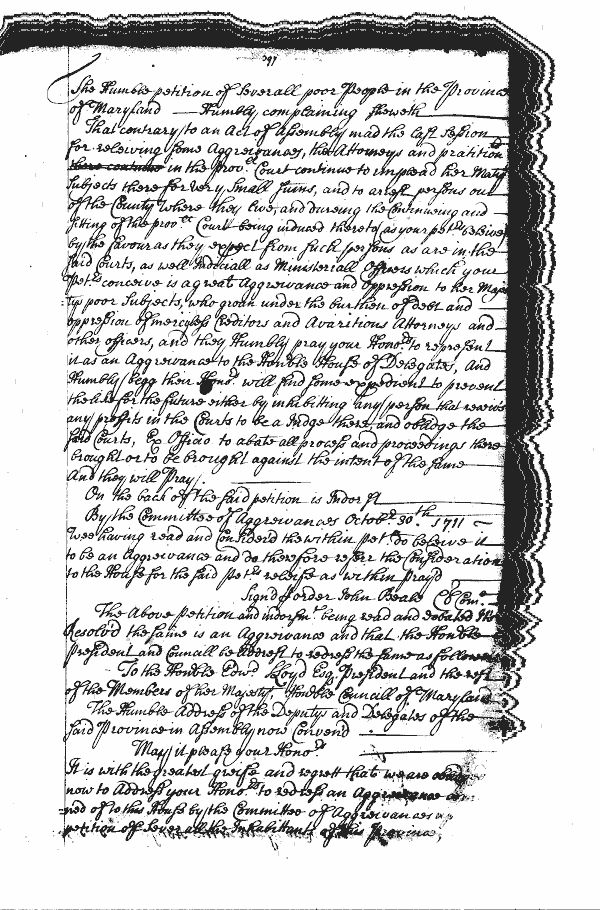 391
The Humble petition of Severall poor People in the Province
of Maryland Humbly complaining sheweth
That contrary to an Act of Assembly mad the last Session
for releiving some Aggreivances, the Attorneys and
there continue in the Prov.ll Court continue to implead her Majtys
Subjects there for very small sums, and to arrest persons out
of the County where they live, and dureing the Continueing and
sitting of the prov.ll Court being induced thereto as your pet.rs beleive
by the favour as they expect from such persons as are in the
said Courts, as well Judiciall as Ministeriall Officers which your
Pet.rs conceive is a great Aggreivance and Oppression to her Majes
tys poor Subjects, who groan under the burthen of debt and
oppression of merciless Creditors and Avaritious Attorneys and
other officers, and they Humbly pray your Hono.rs to represent
it as an Aggreivance to the Honble House of Delegates, And
Humbly begg their Hono.rs will find some expedient to prevent
the like for the future either by inhibitting any person that receives
any proffits in the Courts to be a Judge there, and obleidge the
said Courts, Ex Officio to abate all process and proceedings there
brought or to be brought against the intent of the same
And they will Pray/.
On the back of the said petition is Indors't
By the Committee of Aggreivances Octob.r 30th 1711
Wee having read and Consider'd the within pet.n do beleive it
to be an Aggreivance and do therefore referr the Consideration
to the House for the said Pet.rs releise as within Pray'd
Sign'd p order John Beale Cl Com.ee
The Above Petition and indorsm.t being read and debated the
Resolv'd the same is an Aggreivance and that the Honble
President and Councill be Addrest to redress the same as follows
To the Honble Edw.d Lloyd Esq. President and the rest
of the Members of her Majestys Honble Councill of Maryland
The Humble Address of the Deputys and Delegates of the
said Province in Assembly now Convend
May it please your Hono.rs
It is with the greatest greife and regrett that we are
now to Address your Hono.rs to redress an Aggreivance
ned of to this House by the Committee of Aggreivances
petition of Severall the Inhabittants of this Province,